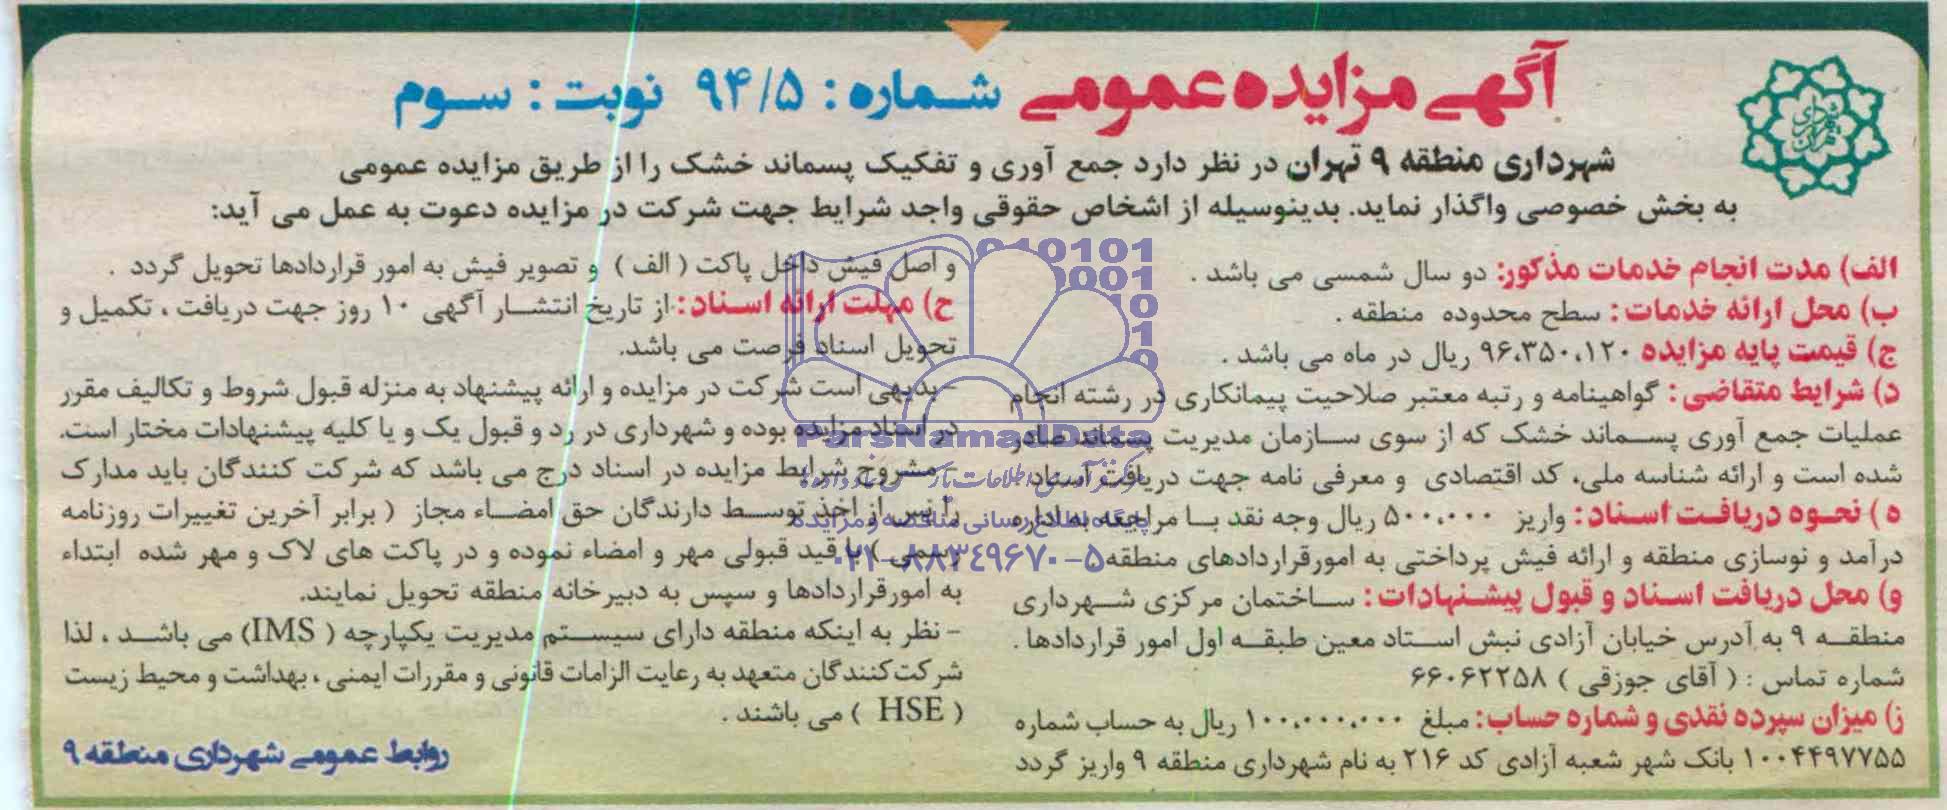 آگهی مزایده عمومی شماره : ۹۴/۵ نوبت : سوم
شهرداری منطقه ۹ تهران در نظر دارد جمع آوری و تفکیک پسماند خشک را از طریق مزایده عمومی
به بخش خصوصی واگذار نماید. بدینوسیله از اشخاص حقوقی واجد شرایط جهت شرکت در مزایده دعوت به عمل می آید:
الف) مدت انجام خدمات مذکور: دو سال شمسی می باشد .
ب) محل ارائه خدمات : سطح محدوده منطقه .
ج) قیمت پایه مزایده ۹۶،۳۵۰،۱۲۰ ریال در ماه می باشد .
د) شرایط متقاضی : گواهینامه و رتبه معتبر صلاحیت پیمانکاری در رشته انجام
عملیات جمع آوری پسماند خشک که از سوی سازمان مدیریت پسماند صادر
شده است و ارائه شناسه ملی، کد اقتصادی و معرفی نامه جهت دریافت اسناد
ه ) نحوه دریافت اسناد : واریز ۵۰۰،۰۰۰ ریال وجه نقد با مراجعه به اداره
درآمد و نوسازی منطقه و ارائه فیش پرداختی به امورقراردادهای منطقه
و) محل دریافت اسناد و قبول پیشنهادات : ساختمان مرکزی شهرداری
منطقه ۹ به آدرس خیابان آزادی نبش استاد معین طبقه اول امور قراردادها .
شماره تماس : ( آقای جوزقی ) ۶۶۰۶۲۲۵۸
ز) میزان سپرده نقدی و شماره حساب : مبلغ ۱۰۰،۰۰۰،۰۰۰ ریال به حساب شماره
۱۰۰۴۴۹۷۷۵۵ بانک شهر شعبه آزادی کد ۲۱۶ به نام شهرداری منطقه ۹ واریز گردد
و اصل فیش داخل پاکت ( الف ) و تصویر فیش به امور قراردادها تحویل گردد .
ح) مهلت ارائه اسناد : از تاریخ انتشار آگهی ۱۰ روز جهت دریافت ، تکمیل و
تحویل اسناد فرصت می باشد.
- بدیهی است شرکت در مزایده و ارائه پیشنهاد به منزله قبول شروط و تکالیف مقرر
در اسناد مزایده بوده و شهرداری در رد و قبول یک و یا کلیه پیشنهادات مختار است.
- مشروح شرایط مزایده در اسناد درج می باشد که شرکت کنندگان باید مدارک
را پس از اخذ توسط دارندگان حق امضاء مجاز ( برابر آخرین تغییرات روزنامه
رسمی ) با قید قبولی مهر و امضاء نموده و در پاکت های لاک و مهر شده ابتداء
به امورقراردادها و سپس به دبیرخانه منطقه تحویل نمایند.
- نظر به اینکه منطقه دارای سیستم مدیریت یکپارچه ( IMS) می باشد ، لذا
شرکت‌کنندگان متعهد به رعایت الزامات قانونی و مقررات ایمنی ، بهداشت و محیط زیست
( HSE ) می باشند .
روابط عمومی شهرداری منطقه ۹
ParsNamadData
پایگاه اطلاع رسانی مناقصه و مزایده
۰۲۱-۸۸۳۴۹۶۷۰-۵